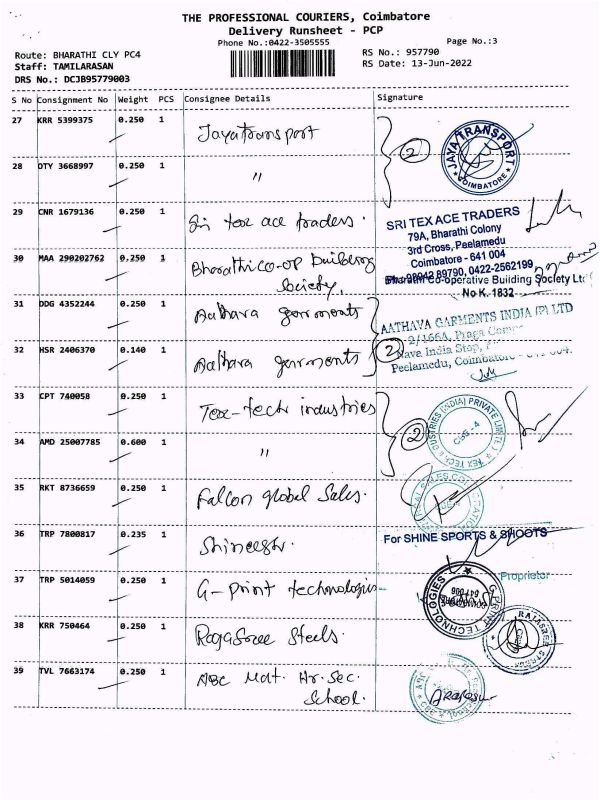 THE PROFESSIONAL COURIERS, Coimbatore
Delivery Runsheet - PCP
Phone No.:0422-3505555
Page No.:3
Route: BHARATHI CLY PC4
RS No.: 957790
Staff: TAMILARASAN
RS Date: 13-Jun-2022
DRS No.: DCJB95779003
S No Consignment No Weight PCS Consignee Details Signature
27 KRR 5399375 0.250 1 Jayatransport 2
JAYA TRANSPORT
COIMBATORE
28 DTY 3668997 0.250 1 "
29 CNR 1679136 0.250 1 Sri tex ace traders.
SRI TEX ACE TRADERS
79A, Bharathi Colony
3rd Cross, Peelamedu
Coimbatore - 641 004
98042 89790, 0422-2562199
30 MAA 290202762 0.250 1 Bharathi co-op building
Society.
Bharathi Co-operative Building Society Ltd
No K. 1832
31 DDG 4352244 0.250 1 Aathava garments
AATHAVA GARMENTS INDIA (P) LTD
2/166A, Praga
Nava India Stop,
Peelamedu, Coimbatore
32 HSR 2406370 0.140 1 Aathava garments 2
33 CPT 740058 0.250 1 Tex-tech industries 2
TEX TECH INDUSTRIES (INDIA) PRIVATE LIMITED
CBE - 4
34 AMD 25007785 0.600 1 "
35 RKT 8736659 0.250 1 Falcon global Sales.
36 TRP 7800817 0.235 1
For SHINE SPORTS & SHOOTS
Proprietor
37 TRP 5014059 0.250 1 G-print technologies
G PRINT TECHNOLOGIES
38 KRR 750464 0.250 1 Rajasree Steels.
RAJASREE STEELS
39 TVL 7663174 0.250 1 ABC Mat. Hr. Sec.
School.